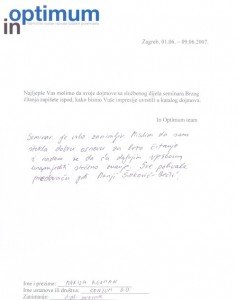 optimum
in
Zagreb, 01.06. – 09.06.2007
Najljepše Vas molimo da svoje dojmove sa službenog dijela seminara Brzog
čitanja napišete ispod, kako bismo Vaše impresije uvrstili u katalog dojmova.
In Optimum team
Seminar je vrlo zanimljiv. Mislim da sam
stekla dobru osnovu za brzo čitanje
i nadam se da ću daljnjim vježbanjem
unaprijediti stečeno znanje. Sve pohvale
predavaču gđi Sanji
Ime i prezime:
Ime ustanove ili društva:
Zanimanje: